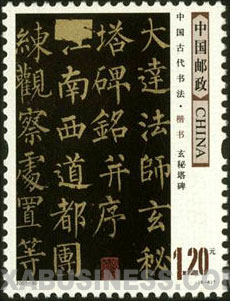 中国邮政 CHINA
中国古代书法·楷书 玄秘塔碑
大達法師玄秘
塔碑銘并序
江南西道都團
練觀察處置等
1.20元